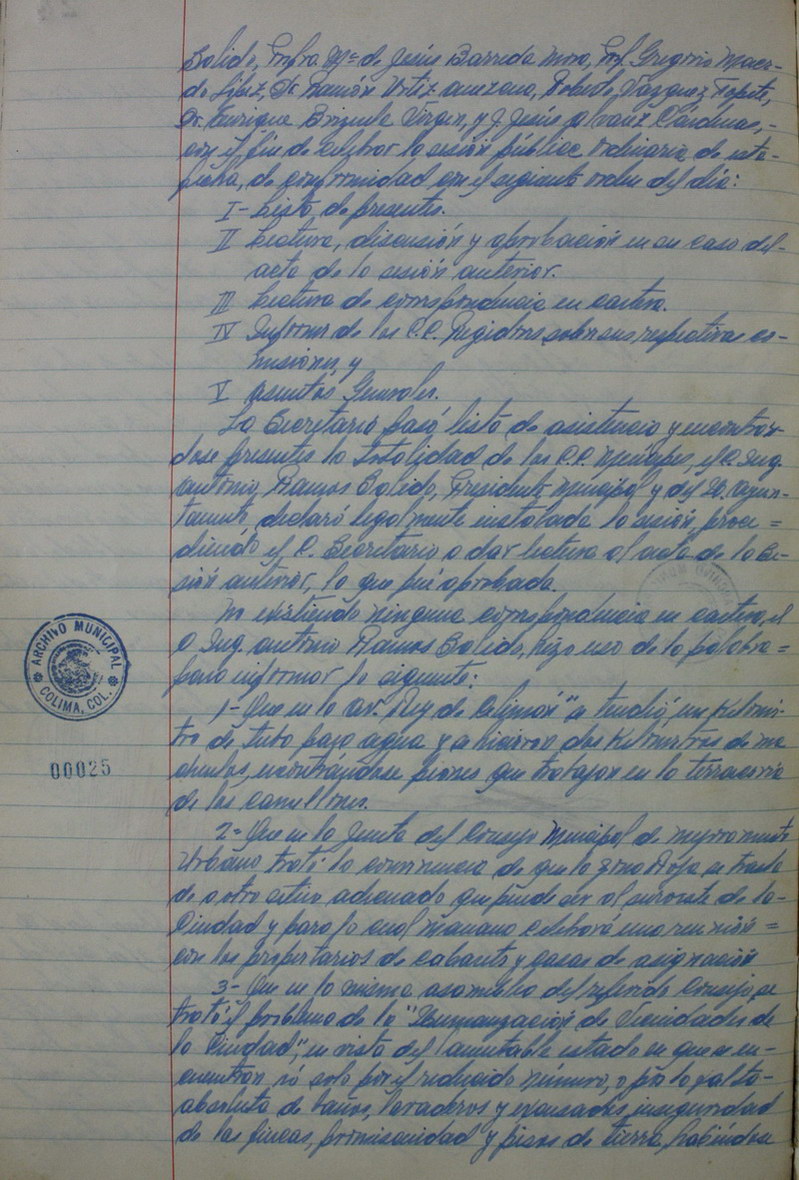 Bolido, Profra. Ma. de Jesús Barreda Mora, Prof. Gregorio Mace-
do López, Dr. Ramón Ortiz Anezana, Roberto Vázquez Topete,
Dr. Enrique Brizuela Virgen, y J. Jesús Alvarez Cárdenas,-
con el fin de celebrar la sesión pública ordinaria de esta-
fecha, de conformidad con el siguiente orden del día:
I- Lista de presentes.
II Lectura, discusión y aprobación en su caso del-
acta de la sesión anterior.
III Lectura de correspondencia en cartera.
IV Informes de los C.C. Regidores sobre sus respectivas co-
misiones, y
V Asuntos Generales.
La Secretario pasó lista de asistencia y encontrán-
dose presentes la totalidad de los C.C. Munícipes, el C. Ing.
Antonio Ramos Bolido, Presidente Municipal y del H. Ayun-
tamiento declaró legalmente instalada la sesión, proce=
diendo el C. Secretario a dar lectura al acta de la Se-
sión anterior, la que fué aprobada.
No existiendo ninguna correspondencia en cartera, el
C Ing. Antonio Ramos Bolido, hizo uso de la palabra=
para informar lo siguiente:
1- Que en la Av. "Rey de Colimán" se tendió un Kilóme-
tro de tubo para agua y se hicieron dos Kilómetros de ma
chuelos, encontrándose peones que trabajan en la terracería
de los camellones.
2- Que en la Junta del Consejo Municipal de mejoramiento
Urbano trató la conveniencia de que la zona Roja se trasla
de a otro sitio adecuado que puede ser al suroeste de la-
Ciudad y para lo cual mañana celebrará una reunión=
con los propietarios de cabarets y casas de asignación
3- Que en la misma asamblea del referido Consejo, se
trató el problema de la "Humanización de Vecindades de
la Ciudad", en vista del lamentable estado en que se en-
cuentran, no solo por el reducido número, o por la falta-
absoluta de baños, lavaderos y excusados, inseguridad
de las fincas, promiscuidad y pisos de tierra, habiéndose
ARCHIVO MUNICIPAL
COLIMA, COL.
00025